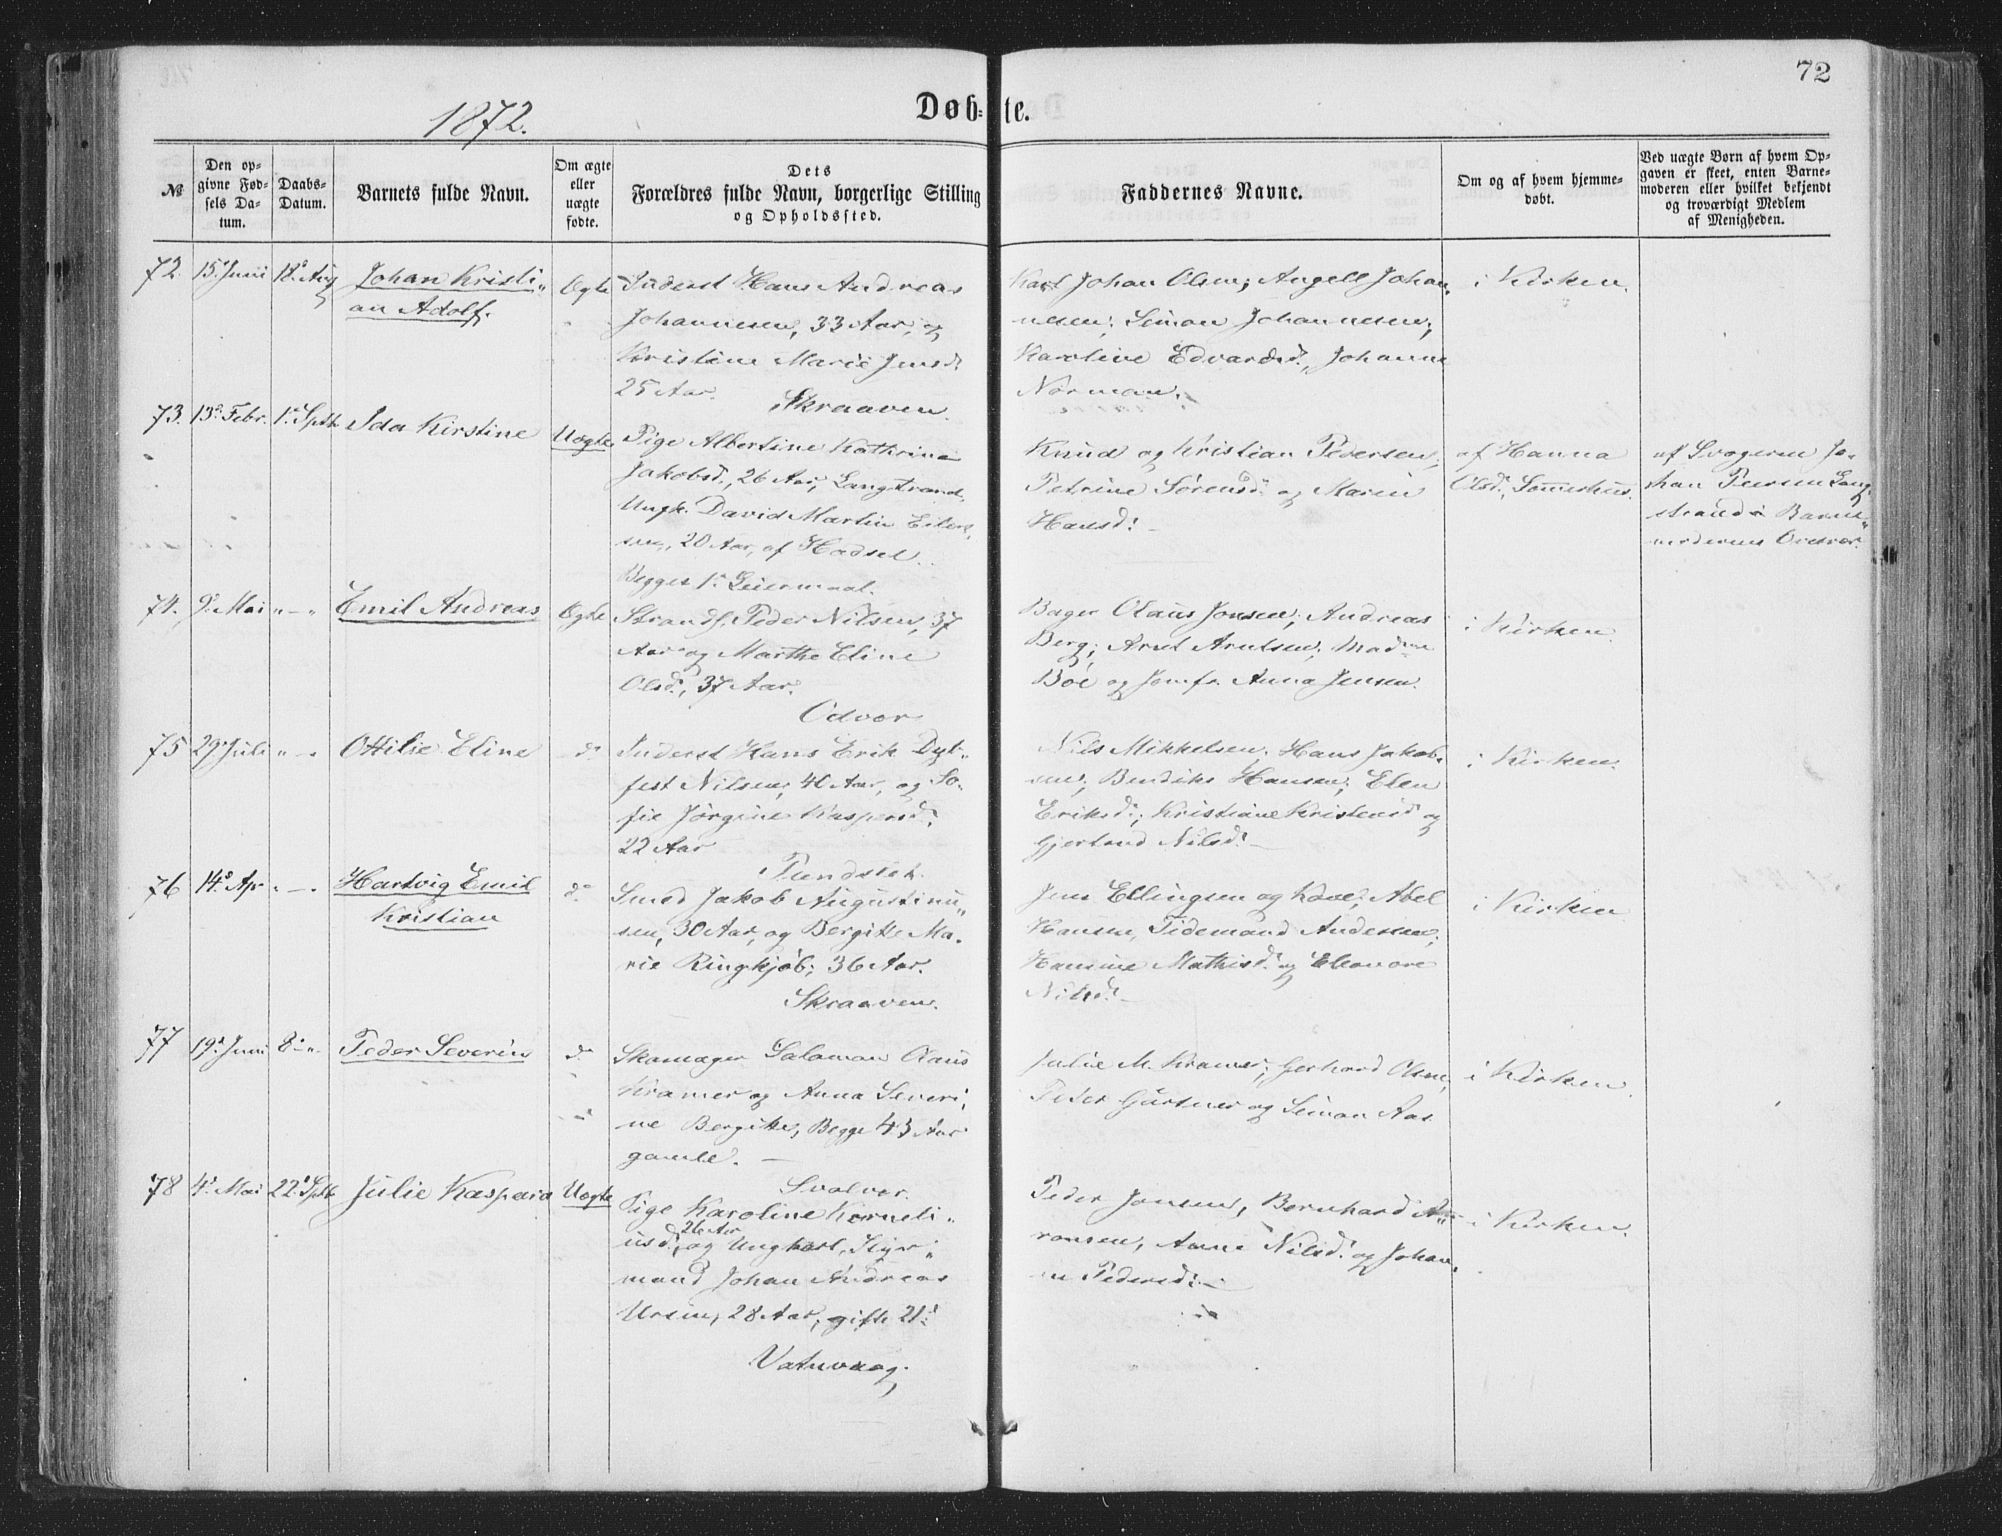 72
1872.
Døb= te.
№
Den op=
givne Fød=
sels Da=
tum.
Daabs=
Datum.
Barnets fulde Navn.
Om ægte
eller
uægte
fødte.
Dets
Forældres fulde Navn, borgerlige Stilling
og Opholdssted.
Faddernes Navne.
Om og af hvem hjemme=
døbt.
Ved uægte Børn af hvem Op=
gaven er skeet, enten Barne=
moderen eller hvilket bekjendt
og troværdigt Medlem
af Menigheden.
72. 15. Juni 18. Aug Johan Kristi„
an Adolf.
Ægte
Inderst Hans Andreas
Johannesen, 33 Aar, og
Kristine Marie Jensd.
25 Aar. Skraaven.
Karl Johan Olsen; Angell Johan„
nesen; Simon Johannesen;
Karoline Edvardsd., Johanna
Norman.
i Kirken.
73. 13. Febr. 1. Sptb. Ida Kirstine
Uægte
Pige Albertine Kathrina
Jakobsd., 26 Aar, Langstrand,
Ungk. David Martin Eilert„
sen, 20 Aar, af Hadsel.
Begges 1. Leiermaal.
Knud og Kristian Pedersen,
Petrine Sørensd. og Maren
Hansd.
af Hanna
Olsd.
af Svogeren Jo„
han Lang„
strand i Barne„
moderens
74. 9. Mai „ — „ Emil Andreas
Ægte
Strands. Peder Nilsen, 37
Aar og Marthe Eline
Olsd., 37 Aar.
Odvær
Bager Olaus Jonsen; Andreas
Berg; Arnt Arntsen; Madme
Bøe og Jomfr. Anna Jensen.
i Kirken.
75 29. Juli „ — „ Ottilie Eline
do
Inderst Hans Erik Dyt„
fest Nilsen, 40 Aar, og So„
fie Jørgine Kaspersd.
22 Aar
Tundstet.
Nils Mikkelsen. Hans Jakob„
sen; Bendiks Hansen; Elen
Eriksd.; Kristiane Kristensd. og
Gjertrud Nilsd.
i Kirken.
76 14. Ap. „ — „ Hartvig Emil
Kristian
do
Smed Jakob Augustinu„
sen, 30 Aar, og Bergitte Ma„
rie Ringkjøb; 36 Aar.
Skraaven.
Jens Ellingsen og Kone; Abel
Hansen, Tidemand Andersen;
Hansine Mathisd. og Eleonore
Nilsd.
i Kirken
77 19. Juni 8. „ Peder Severin
do
Skomager Salamon Olaus
Kramer og Anna Severi„
ne Bergitte, Begge 43 Aar
gamle.
Svolvær.
Julie M. Kramer; Gerhard Olsen,
Peder Gärtner og Simon Aas
i Kirken
78 4. Mai 22. Sptb. Julie Kaspara
Uægte
Pige Karoline Korneli„
usd., 26 Aar og Ungkarl, Styr„
mand Johan Andreas
Ursin, 28 Aar, gifte 21.
Vatnvaag.
Peder Jonsen, Bernhard A„
ronsen, Anne Nilsd. og Johan„
ne Pedersd.
i Kirken.